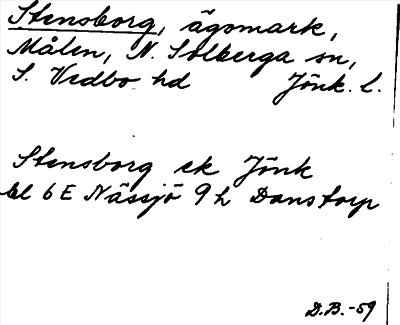 Stensborg, ägomark,
Målen, N. Solberga sn,
S. Vedbo hd Jönk. l.
Stensborg ek Jönk
bl 6 E Nässjö 9 h Danstorp
D.B.-59